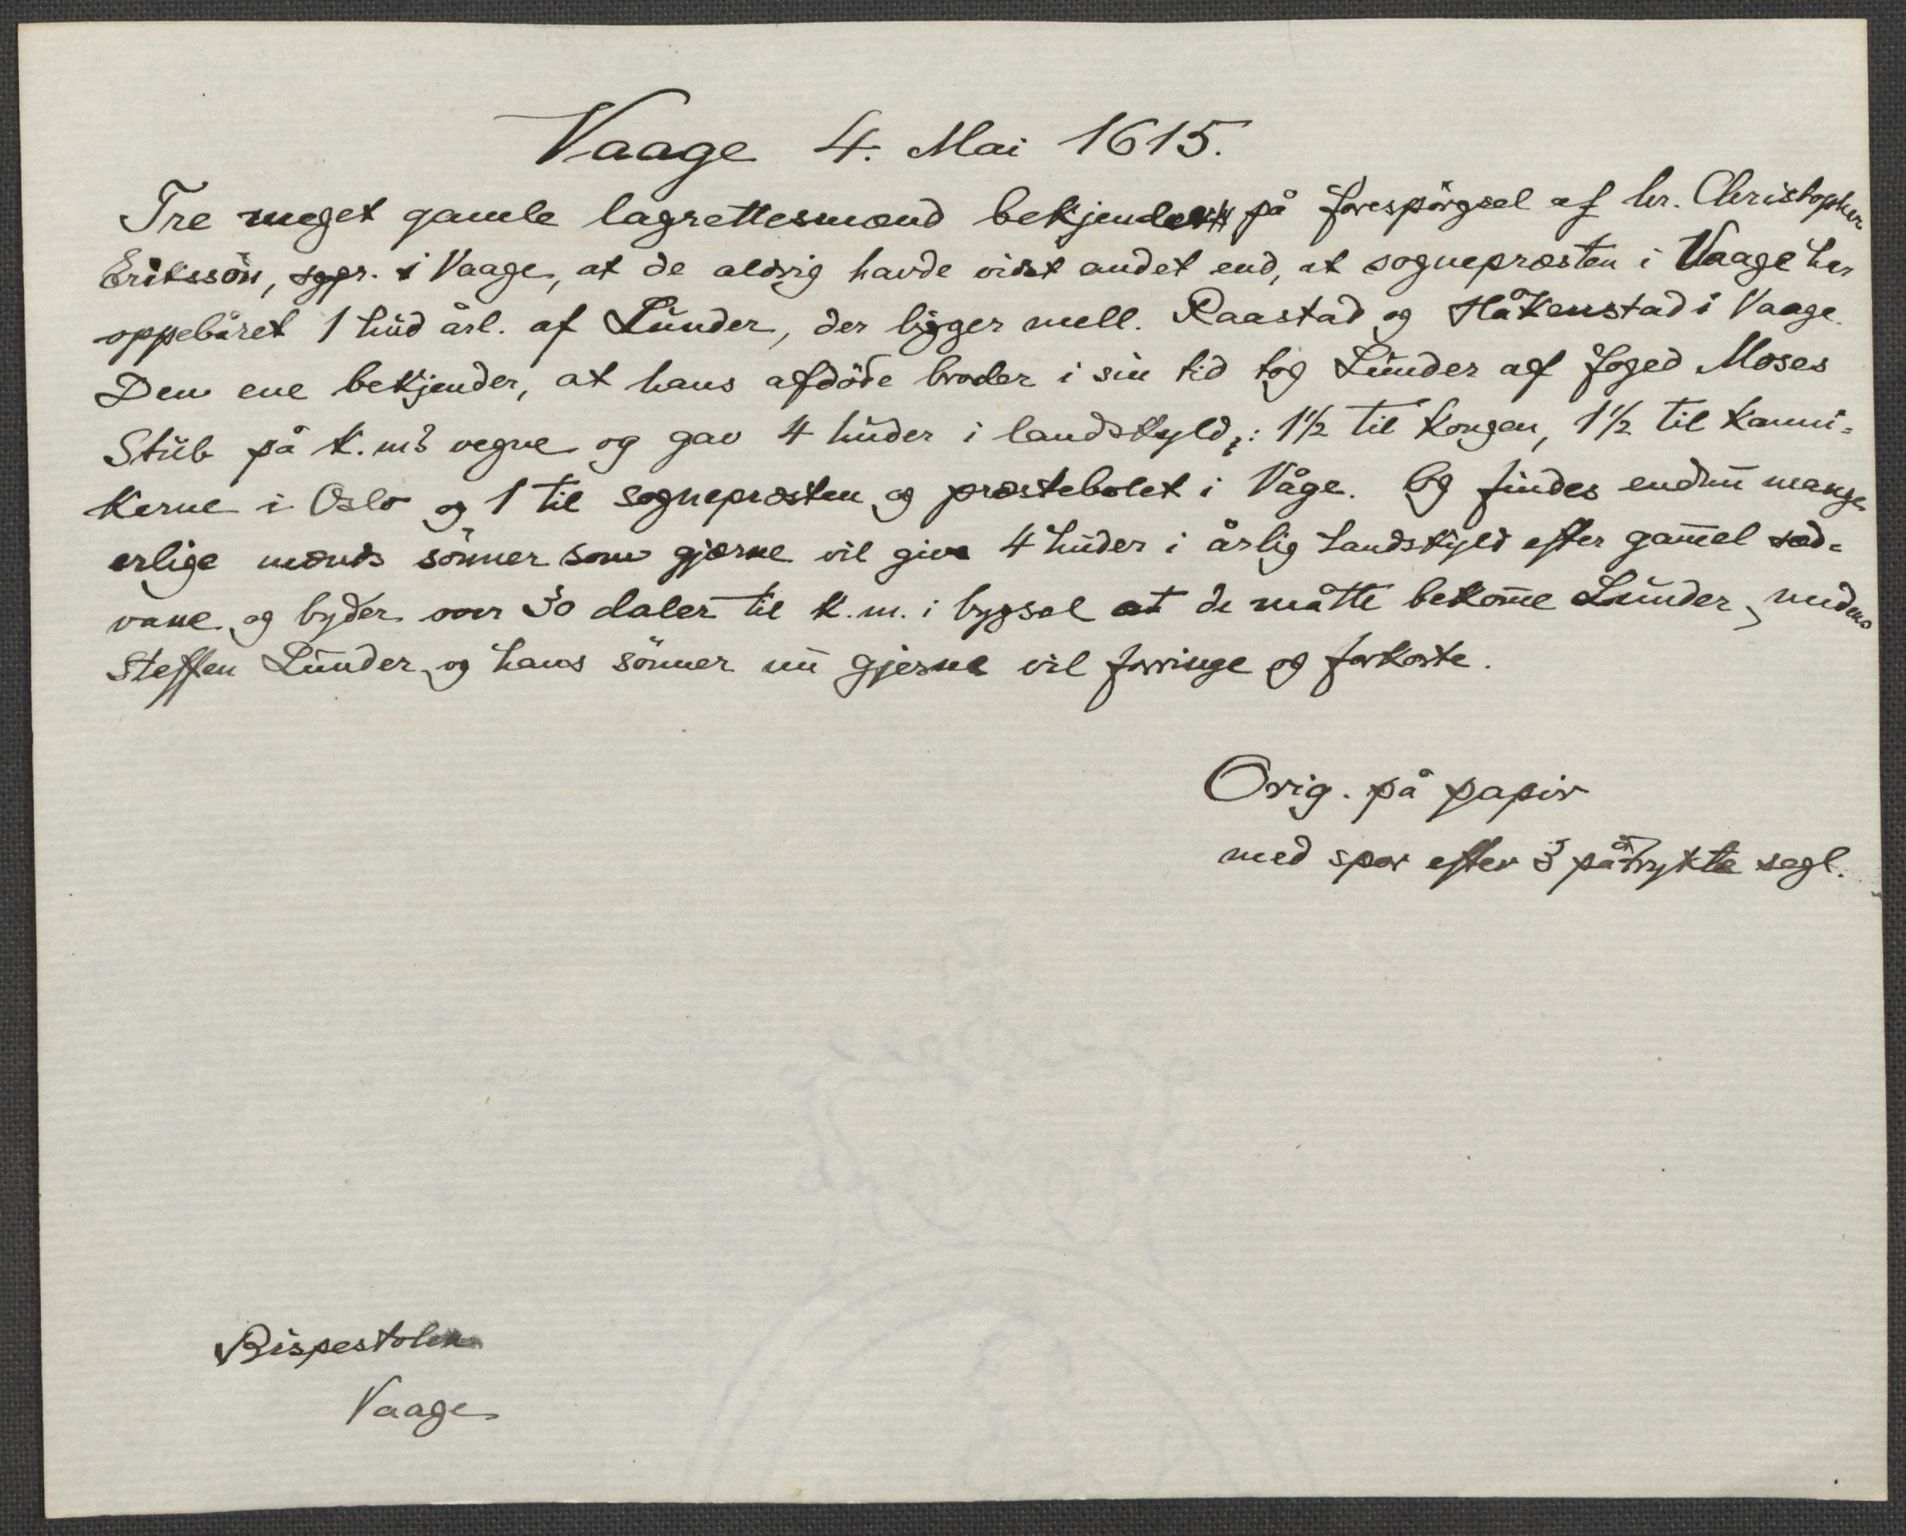 Vaage 4. Mai 1615.
Tre meget gamle lagrettesmænd bekjender på forespörgsel af hr. Christopher
Erikssön, sgpr. i Vaage, at de aldrig havde vidst andet end, at sognepræsten i Vaage har
oppebåret 1 hud årl. af Lunder, der ligger mell. Raastad og Håkenstad i Vaage.
Den ene bekjender, at hans afdöde broder i sin tid tog Lunder af foged Moses
Stub på k. ms vegne og gav 4 huder i landskyld,: 1½ til kongen, 1½ til kanni-
kerne i Oslo og 1 til sognepræsten og præstebolet i Våge. Og findes endnu mange
erlige mænds sönner som gjærne vil give 4 huder i årlig landskyld efter gam̅el sæd-
vane og byder over 30 daler til k. m. i bygsel at de måtte bekom̅e Lunder,
Steffen Lunder og hans sönner nu gjerne vil forringe og forkorte.
Orig. på papir
med spor efter 3 påtrykte segl.
Bispestolen
Vaage